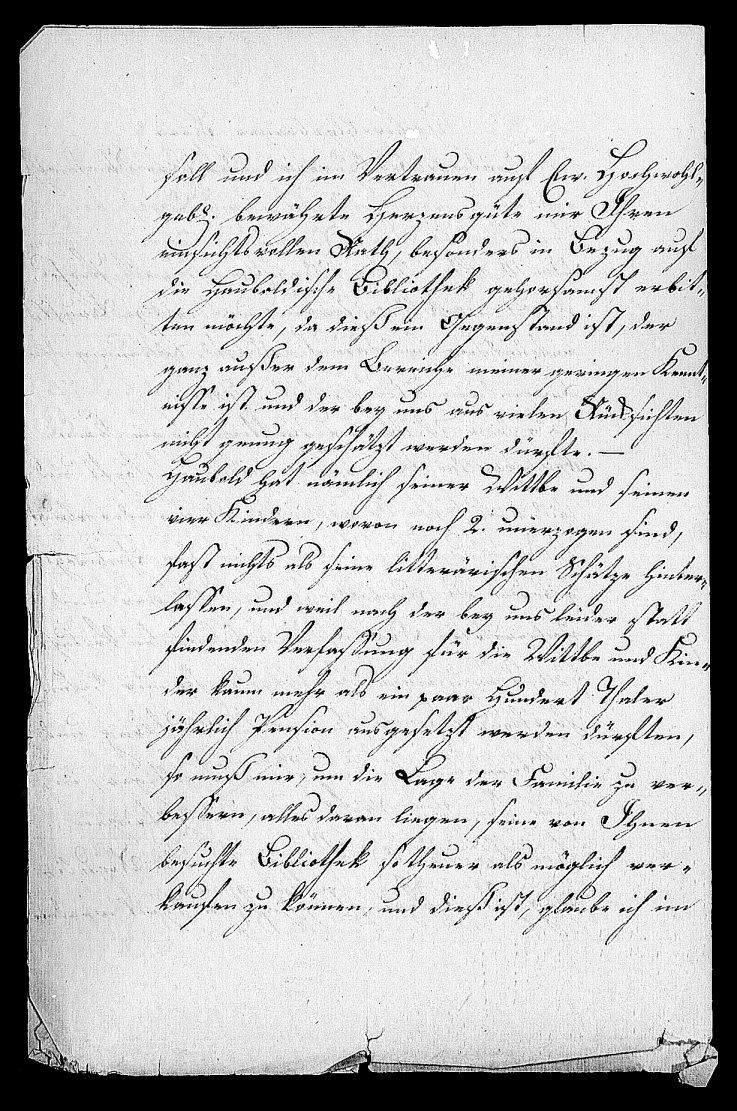 soll und ich im Vertrauen auf Ew. Hochwohl-
geb. bewährte Herzensgüte mir Ihren
einsichtsvollen Rath, besonders in Bezug auf
die Hauboldische Bibliothek gehorsamst erbit-
ten möchte, da dieß ein Gegenstand ist, der
ganz außer dem Bereiche meiner geringen Kennt-
nisse ist und der bey uns aus vielen Rücksichten
nicht genung geschätzt werden dürfte. —
Haubold hat nämlich seiner Wittbe und seinen
vier Kindern, wovon noch 2. unerzogen sind,
fast nichts als seine litterärischen Schätze hinter-
lassen, und weil nach der bey uns leider statt
findenden Verfassung für die Wittbe und Kin-
der kaum mehr als ein paar Hundert Thaler
jährlich Pension ausgesetzt werden dürften,
so muß mir, um die Lage der Familie zu ver-
bessern, alles daran liegen, seine von Ihnen
besuchte Bibliothek so theuer als möglich ver-
kaufen zu können, und dieß ist, glaube ich im